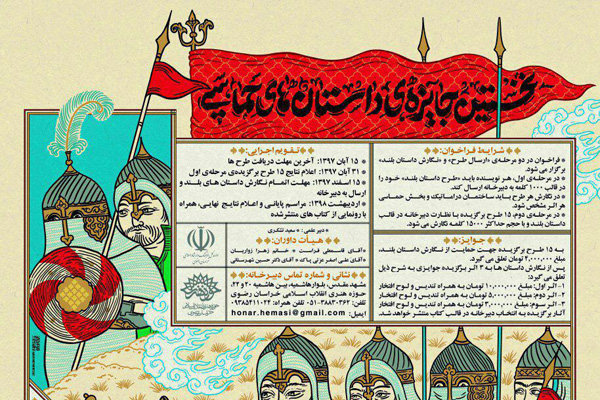 نخستین جایزه‌ی داستان های حماسی
شرایط فراخوان:
● فراخوان در دو مرحله‌ی «ارسال طرح» و «نگارش داستان بلند»
برگزار می شود.
● در مرحله‌ی اول، هنرجو نویسنده باید «طرح داستان بلند» خود را
در قالب ۱۰۰۰ کلمه به دبیرخانه ارسال کند.
● در هر طرح باید ساختمان دراماتیک و بخش حماسی
هر اثر مشخص شود.
● در مرحله‌ی دوم، ۱۵ طرح برگزیده با نظارت دبیرخانه در قالب
داستان بلند و با حجم حداکثر ۱۵۰۰۰ کلمه نگارش می شود.
جوایز:
به ۱۵ طرح برگزیده جهت حمایت از نگارش داستان بلند،
مبلغ ۲,۰۰۰,۰۰۰ تومان تعلق می گیرد.
پس از نگارش داستان ها به ۳ اثر برگزیده جوایزی به شرح ذیل
تعلق می گیرد:
۱- اثر اول: مبلغ ۱۰,۰۰۰,۰۰۰ تومان به همراه تندیس و لوح افتخار
۲- اثر دوم: مبلغ ۵,۰۰۰,۰۰۰ تومان به همراه تندیس و لوح افتخار
۳- اثر سوم: مبلغ ۳,۰۰۰,۰۰۰ تومان به همراه تندیس و لوح افتخار
آثار برگزیده به انتخاب دبیرخانه در قالب کتاب منتشر خواهد شد.
تقویم اجرایی:
● ۱۵ آبان ۱۳۹۷: آخرین مهلت دریافت طرح ها
● ۳۱ آبان ۱۳۹۷: اعلام نتایج ۱۵ طرح برگزیده‌ی مرحله‌ی اول
● ۱۵ اسفند ۱۳۹۷: مهلت اتمام نگارش داستان های بلند و
ارسال به دبیرخانه
● اردیبهشت ۱۳۹۸: مراسم پایانی و اعلام نتایج نهایی، همراه
با رونمایی از کتاب های منتشرشده
● دبیر علمی: ● سعید تشکری
هیات داوران:
آقای قاسمعلی فراست ● خانم زهرا زواریان
آقای علی اصغر عزتی پاک ● آقای دکتر حسین شهرستانی
نشانی و شماره تماس دبیرخانه:
مشهد مقدس، بلوار هاشمیه، بین هاشمیه ۲۰ و ۲۲،
حوزه هنری انقلاب اسلامی خراسان رضوی
تلفن: ۳۶۲-۰۵۱۳۸۸۳۰ همراه: ۰۹۳۸۵۴۱۱۰۲۴
ایمیل: honar.hemasi@gmail.com